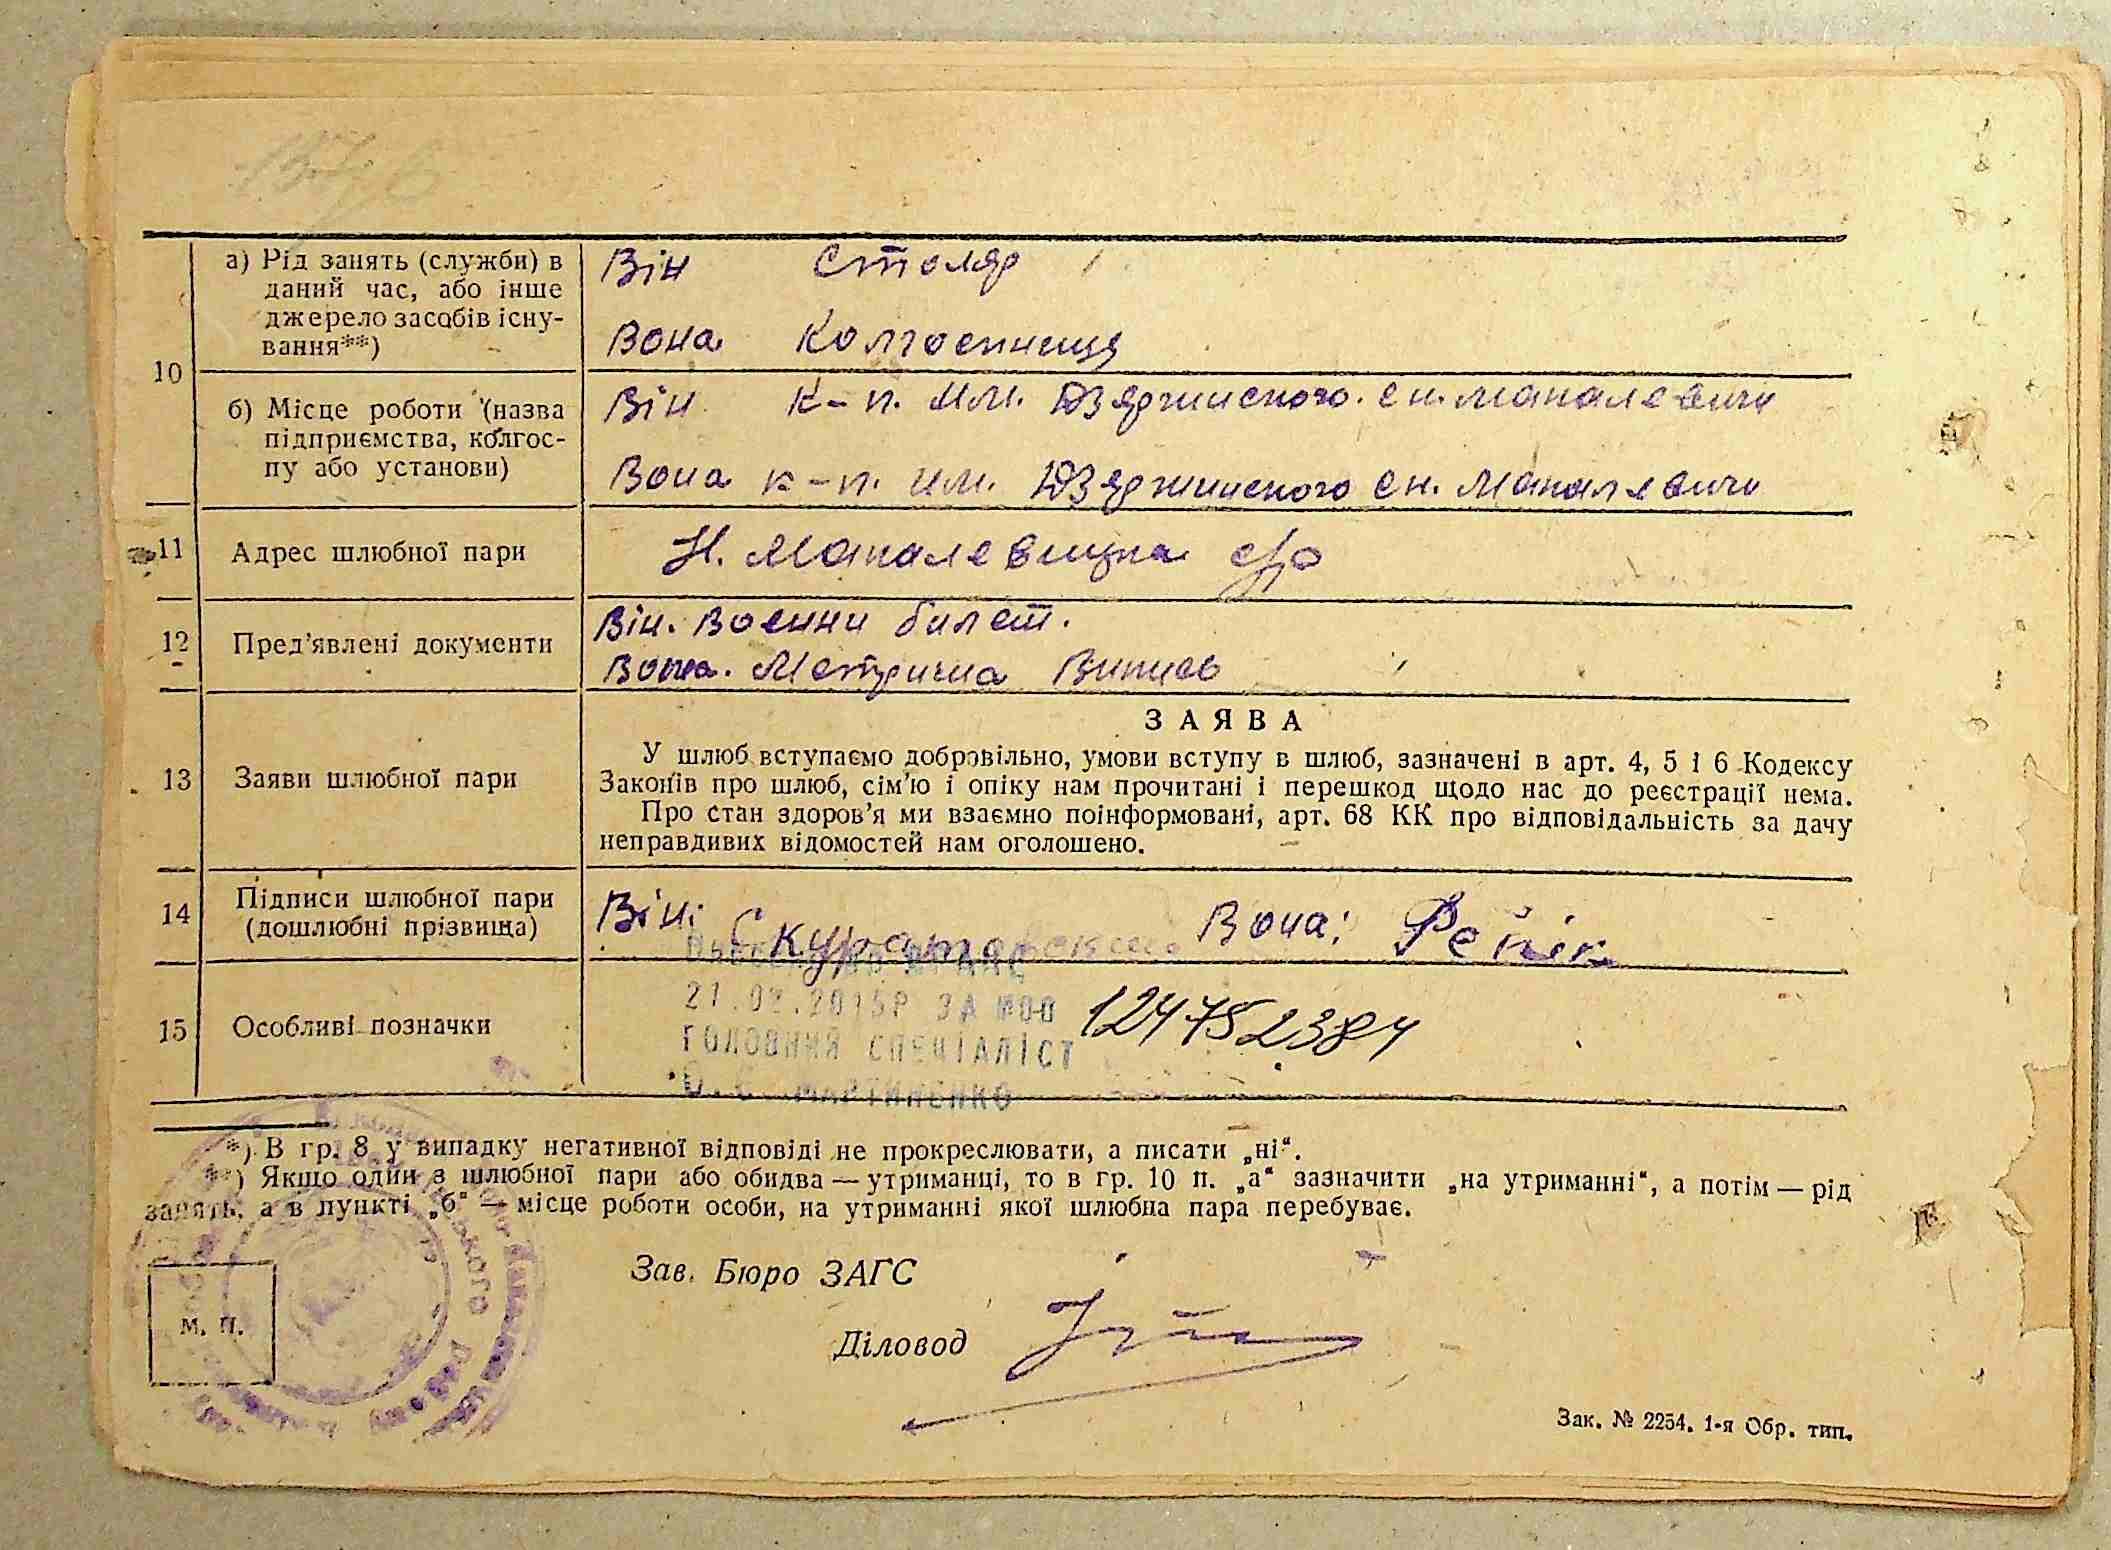 а) Рід занять (служби) в
даний час, або інше
джерело засобів існу-
вання**)
Він Столяр
Вона Колгоспниця
10
б) Місце роботи (назва
підприємства, колгос-
пу або установи)
Він к-п. им. Дзержинского. сн. Мапалевичи
Вона к-п. им. Дзержинского сн. Мапалевичи
11 Адрес шлюбної пари
12 Пред'явлені документи
Він. Военни билет.
Вона. Метрична Випись
13 Заяви шлюбної пари
ЗАЯВА
У шлюб вступаємо добровільно, умови вступу в шлюб, зазначені в арт. 4, 5 і 6 Кодексу
Законів про шлюб, сім'ю і опіку нам прочитані і перешкод щодо нас до реєстрації нема.
Про стан здоров'я ми взаємно поінформовані, арт. 68 КК про відповідальність за дачу
неправдивих відомостей нам оголошено.
14 Підписи шлюбної пари
(дошлюбні прізвища)
Він: Вона: Репік
15 Особливі позначки
21.02.2015Р ЗА №00 124752384
ГОЛОВНИЙ СПЕЦІАЛІСТ
О.С. МАРТИНЕНКО
*) В гр. 8 у випадку негативної відповіді не прокреслювати, а писати „ні“.
**) Якщо один з шлюбної пари або обидва — утриманці, то в гр. 10 п. „а“ зазначити „на утриманні“, а потім — рід
занять, а в пункті „б“ — місце роботи особи, на утриманні якої шлюбна пара перебуває.
Зав. Бюро ЗАГС
М. П.
Діловод
Зак. № 2254. 1-я Обр. тип.